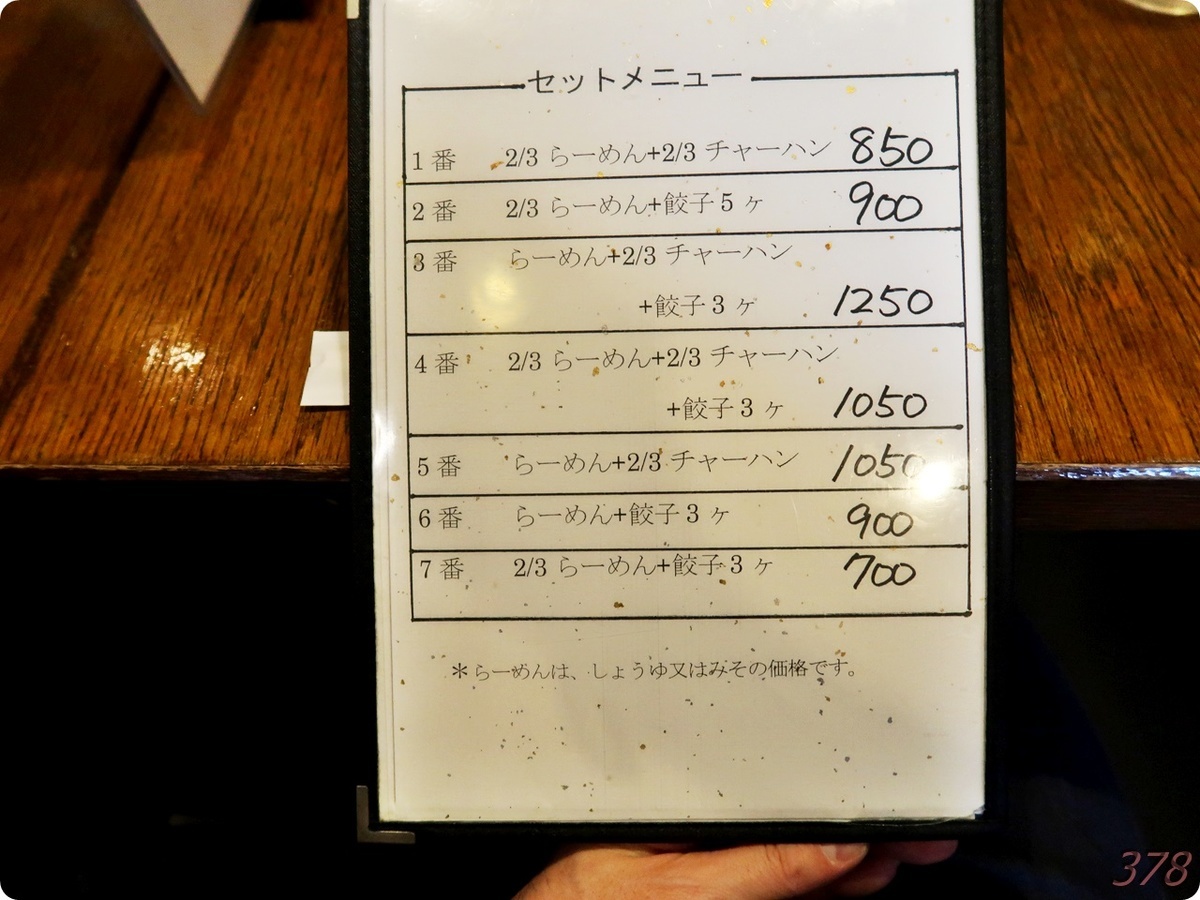 セットメニュー
1番 2/3 らーめん+2/3 チャーハン 850
2番 2/3 らーめん+餃子5ヶ 900
3番 らーめん+2/3 チャーハン
+餃子3ヶ 1250
4番 2/3 らーめん+2/3 チャーハン
+餃子3ヶ 1050
5番 らーめん+2/3 チャーハン 1050
6番 らーめん+餃子3ヶ 900
7番 2/3 らーめん+餃子3ヶ 700
＊らーめんは、しょうゆ又はみその価格です。
378